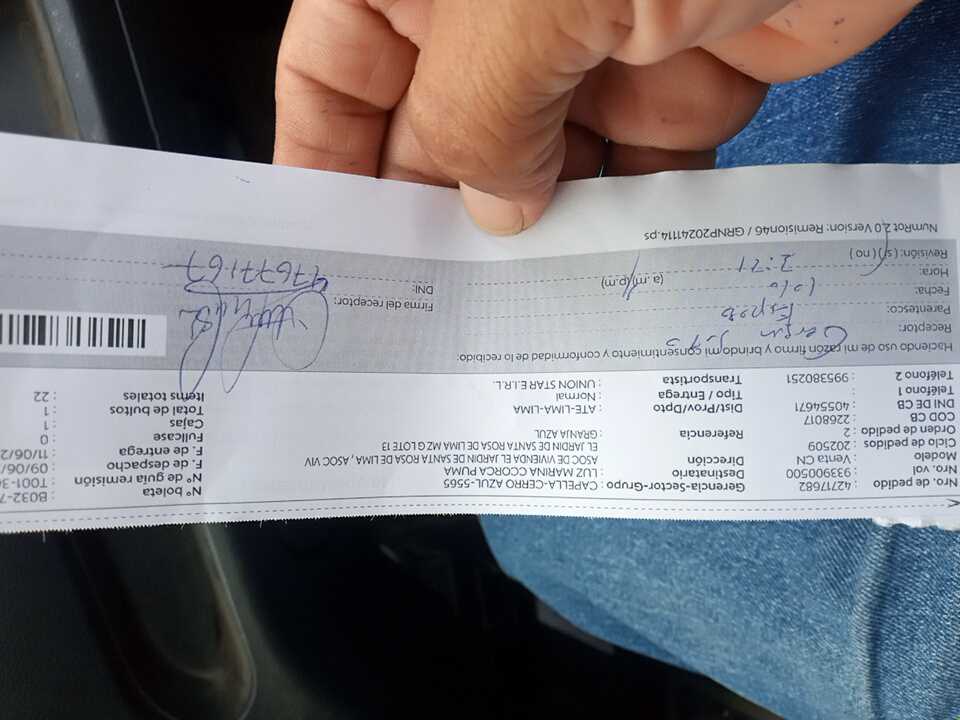 Nro. de pedido : 42717682 Gerencia-Sector-Grupo : CAPELLA-CERRO AZUL-S565 N° boleta : B032-7
Nro. val. : 933900500 Destinatario : LUZ MARINA CCORCA PUMA N° de guía remisión : T001-3
Modelo : Venta CN Dirección : ASOC DE VIVIENDA EL JARDIN DE SANTA ROSA DE LIMA , ASOC VIV F. de despacho : 09/06/
Ciclo de pedidos : 202509 EL JARDIN DE SANTA ROSA DE LIMA MZ Q LOTE 13 F. de entrega : 11/06/2
Orden de pedido : 2 Referencia : GRANJA AZUL Fullcase : 0
COD CB : 2268017 Cajas : 1
DNI DE CB : 40554671 Dist/Prov/Dpto : ATE-LIMA-LIMA Total de bultos : 1
Teléfono 1 : Tipo / Entrega : Normal Items totales : 22
Teléfono 2 : 995380251 Transportista : UNION STAR E.I.R.L.
Haciendo uso de mi razón firmo y brindo mi consentimiento y conformidad de lo recibido:
Receptor:
Parentesco: Esposo Firma del receptor:
Fecha: DNI: 47677167
Hora: (a .m) (p.m)
Revisión: (si) ( no )
NumRot 2.0 Version: Remision46 / GRNP20241114.ps